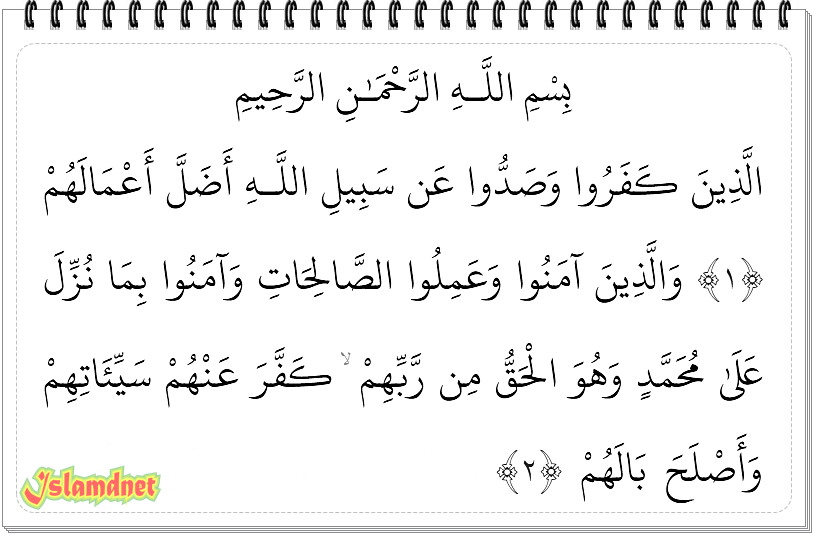 بِسْمِ اللَّـهِ الرَّحْمَـٰنِ الرَّحِيمِ
الَّذِينَ كَفَرُوا وَصَدُّوا عَن سَبِيلِ اللَّـهِ أَضَلَّ أَعْمَالَهُمْ
﴿١﴾ وَالَّذِينَ آمَنُوا وَعَمِلُوا الصَّالِحَاتِ وَآمَنُوا بِمَا نُزِّلَ
عَلَىٰ مُحَمَّدٍ وَهُوَ الْحَقُّ مِن رَّبِّهِمْ ۙ كَفَّرَ عَنْهُمْ سَيِّئَاتِهِمْ
وَأَصْلَحَ بَالَهُمْ ﴿٢﴾
Islamdnet